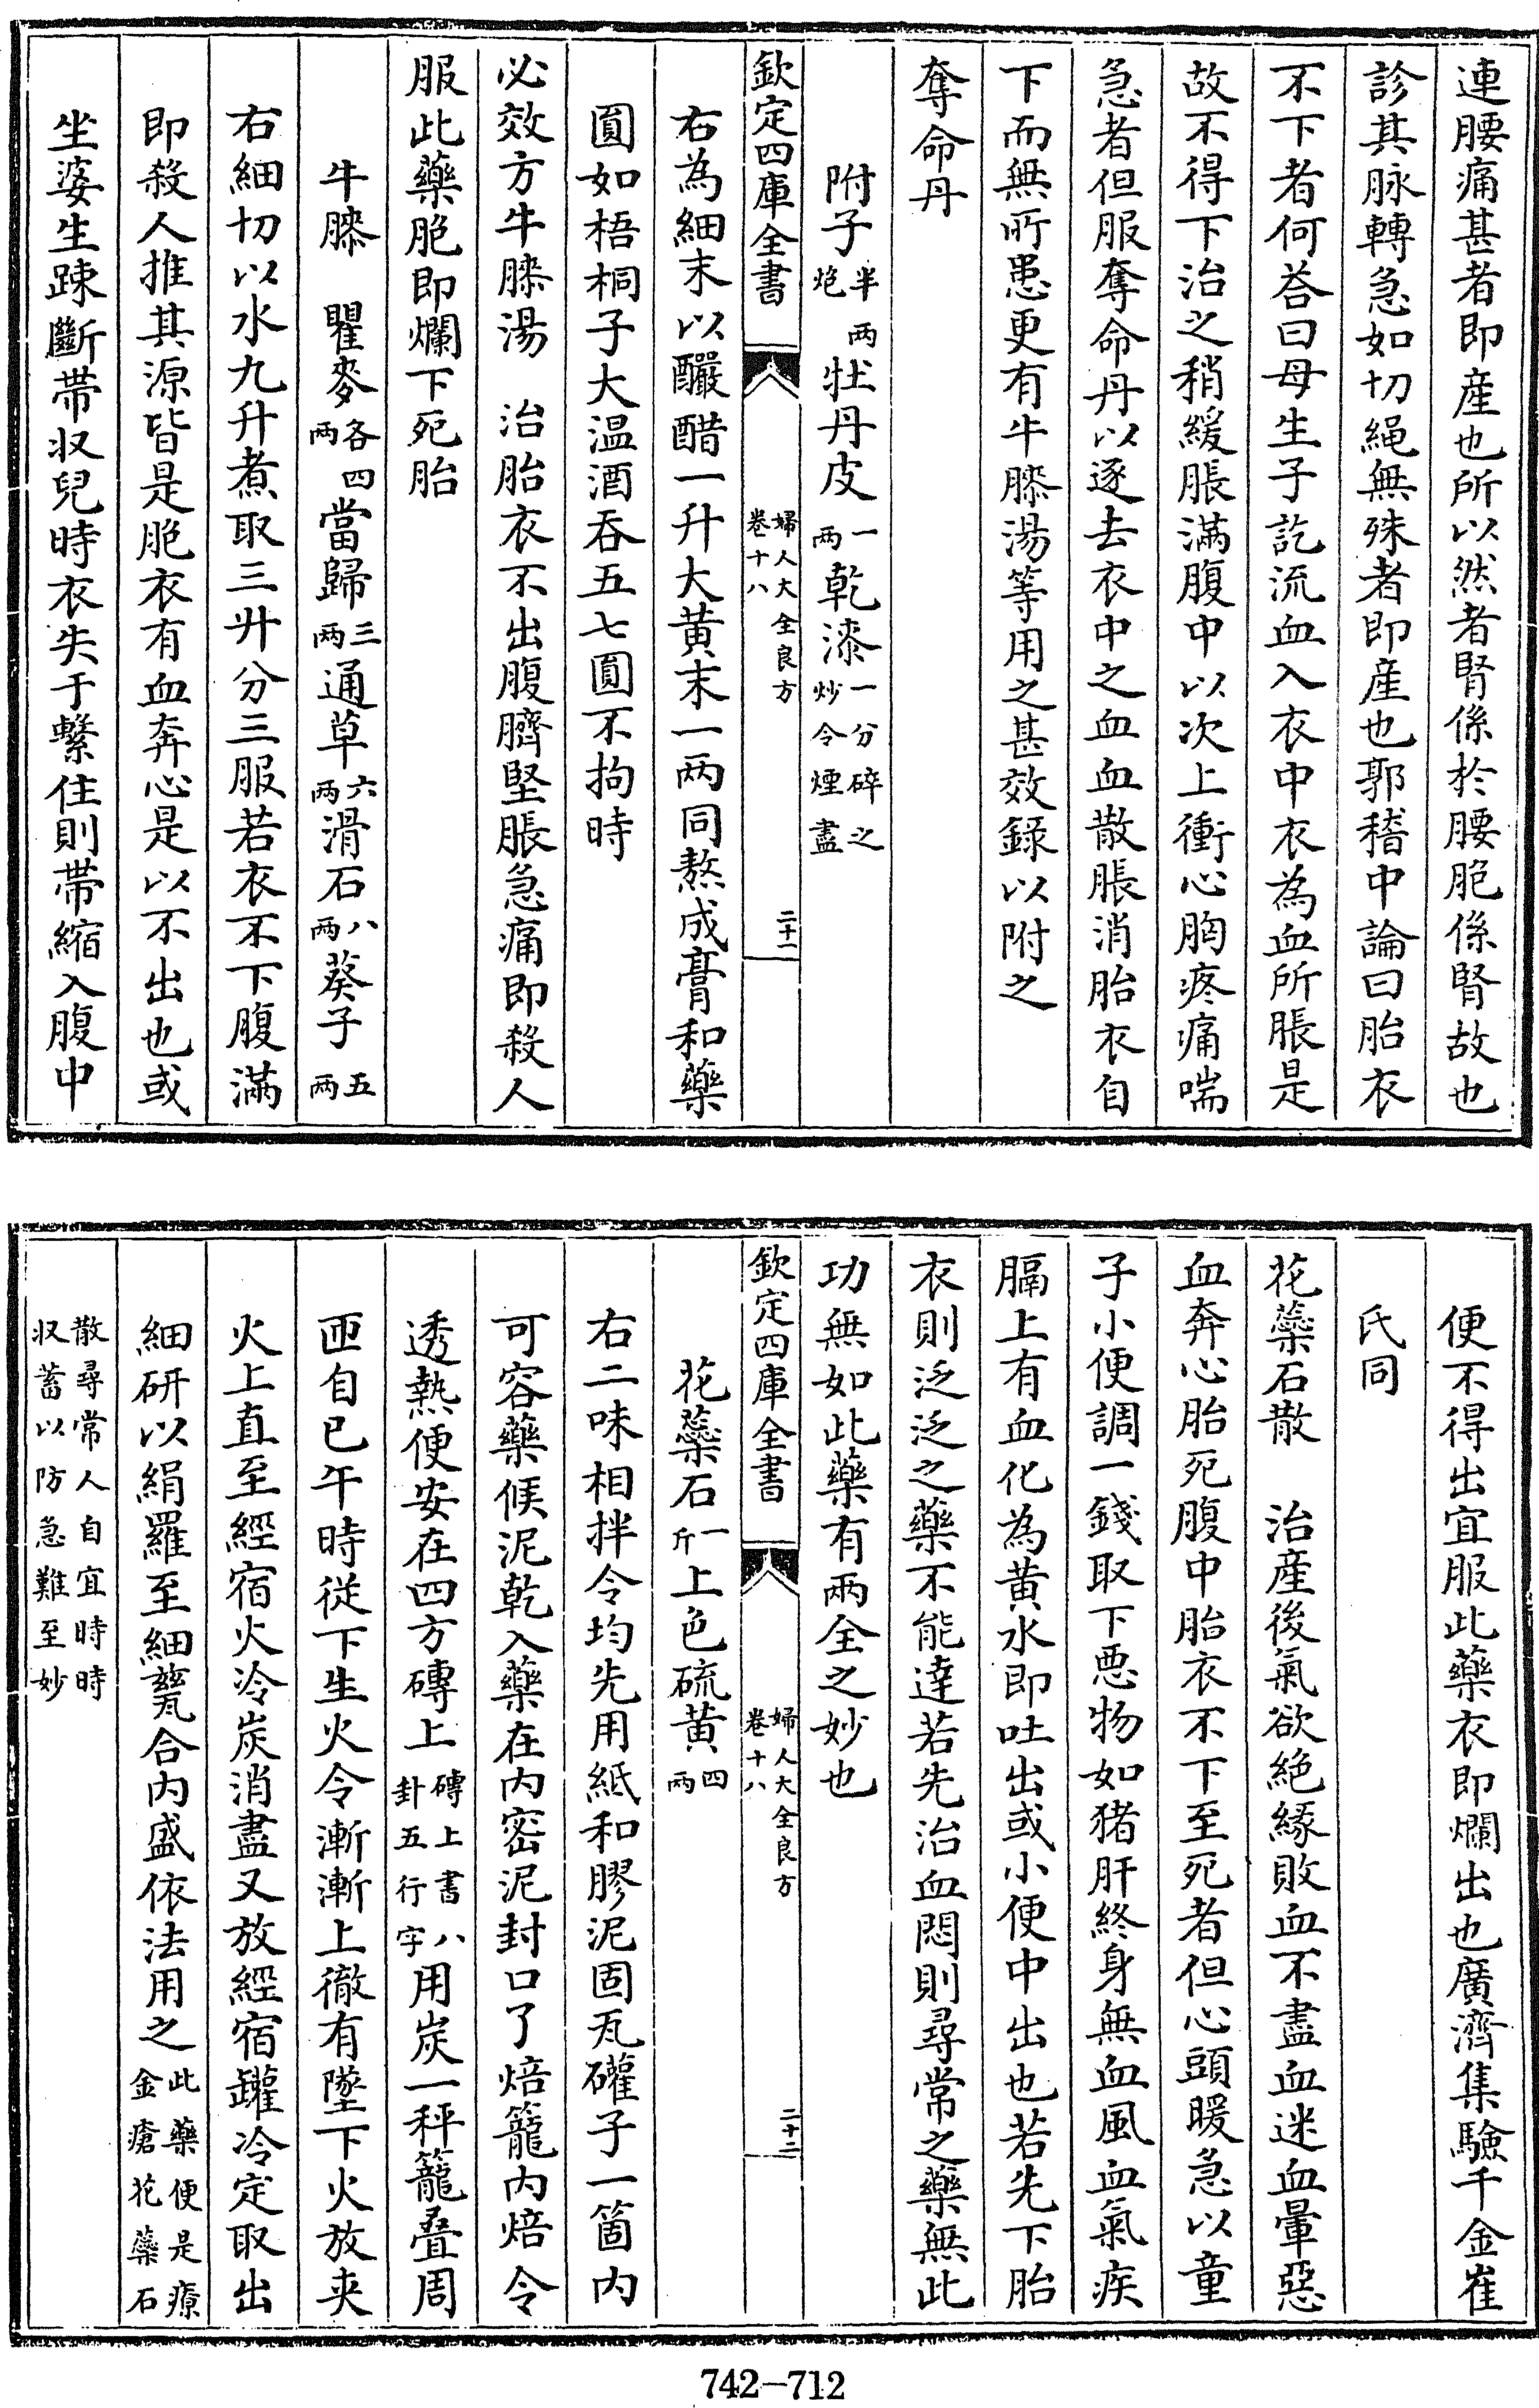 連腰痛甚者即産也所以然者腎係於腰胞係腎故也
診其脉轉急如切繩無殊者即産也郭稽中論曰胎衣
不下者何荅曰母生子訖流血入衣中衣為血所脹是
故不得下治之稍緩脹滿腹中以次上衝心胸疼痛喘
急者但服奪命丹以逐去衣中之血血散脹消胎衣自
下而無所患更有牛膝湯等用之甚效錄以附之
奪命丹
附子半两炮牡丹皮一两乾漆一分碎之炒令煙盡
欽定四庫全書 婦人大全良方卷十八 二十一
右為細末以釅醋一升大黄末一两同熬成膏和藥
圓如梧桐子大温酒吞五七圓不拘時
必效方牛膝湯 治胎衣不出腹臍堅脹急痛即殺人
服此藥胞即爛下死胎
牛膝 瞿麥各四两當歸三两通草六两滑石八两葵子五两
右細切以水九升煮取三升分三服若衣不下腹滿
即殺人推其源皆是胞衣有血奔心是以不出也或
坐婆生踈斷带収兒時衣失于繫住則带縮入腹中
便不得出宜服此藥衣即爛出也廣濟集驗千金崔
氏同
花蘂石散 治産後氣欲絶緣敗血不盡血迷血暈惡
血奔心胎死腹中胎衣不下至死者但心頭暖急以童
子小便調一錢取下惡物如猪肝終身無血風血氣疾
膈上有血化為黄水即吐出或小便中出也若先下胎
衣則泛泛之藥不能達若先治血悶則尋常之藥無此
功無如此藥有兩全之妙也
欽定四庫全書 婦人大全良方卷十八 二十二
花蘂石一斤上色硫黄四两
右二味相拌令均先用紙和膠泥固瓦礶子一箇内
可容藥候泥乾入藥在内密泥封口了焙籠内焙令
透熱便安在四方磚上磚上書八卦五行字用炭一秤籠叠周
匝自巳午時從下生火令漸漸上徹有墜下火放夹
火上直至經宿火冷炭消盡又放經宿罐冷定取出
細研以絹羅至細甆合内盛依法用之此藥便是療金瘡花蘂石
散尋常人自宜時時収蓄以防急難至妙
742-712